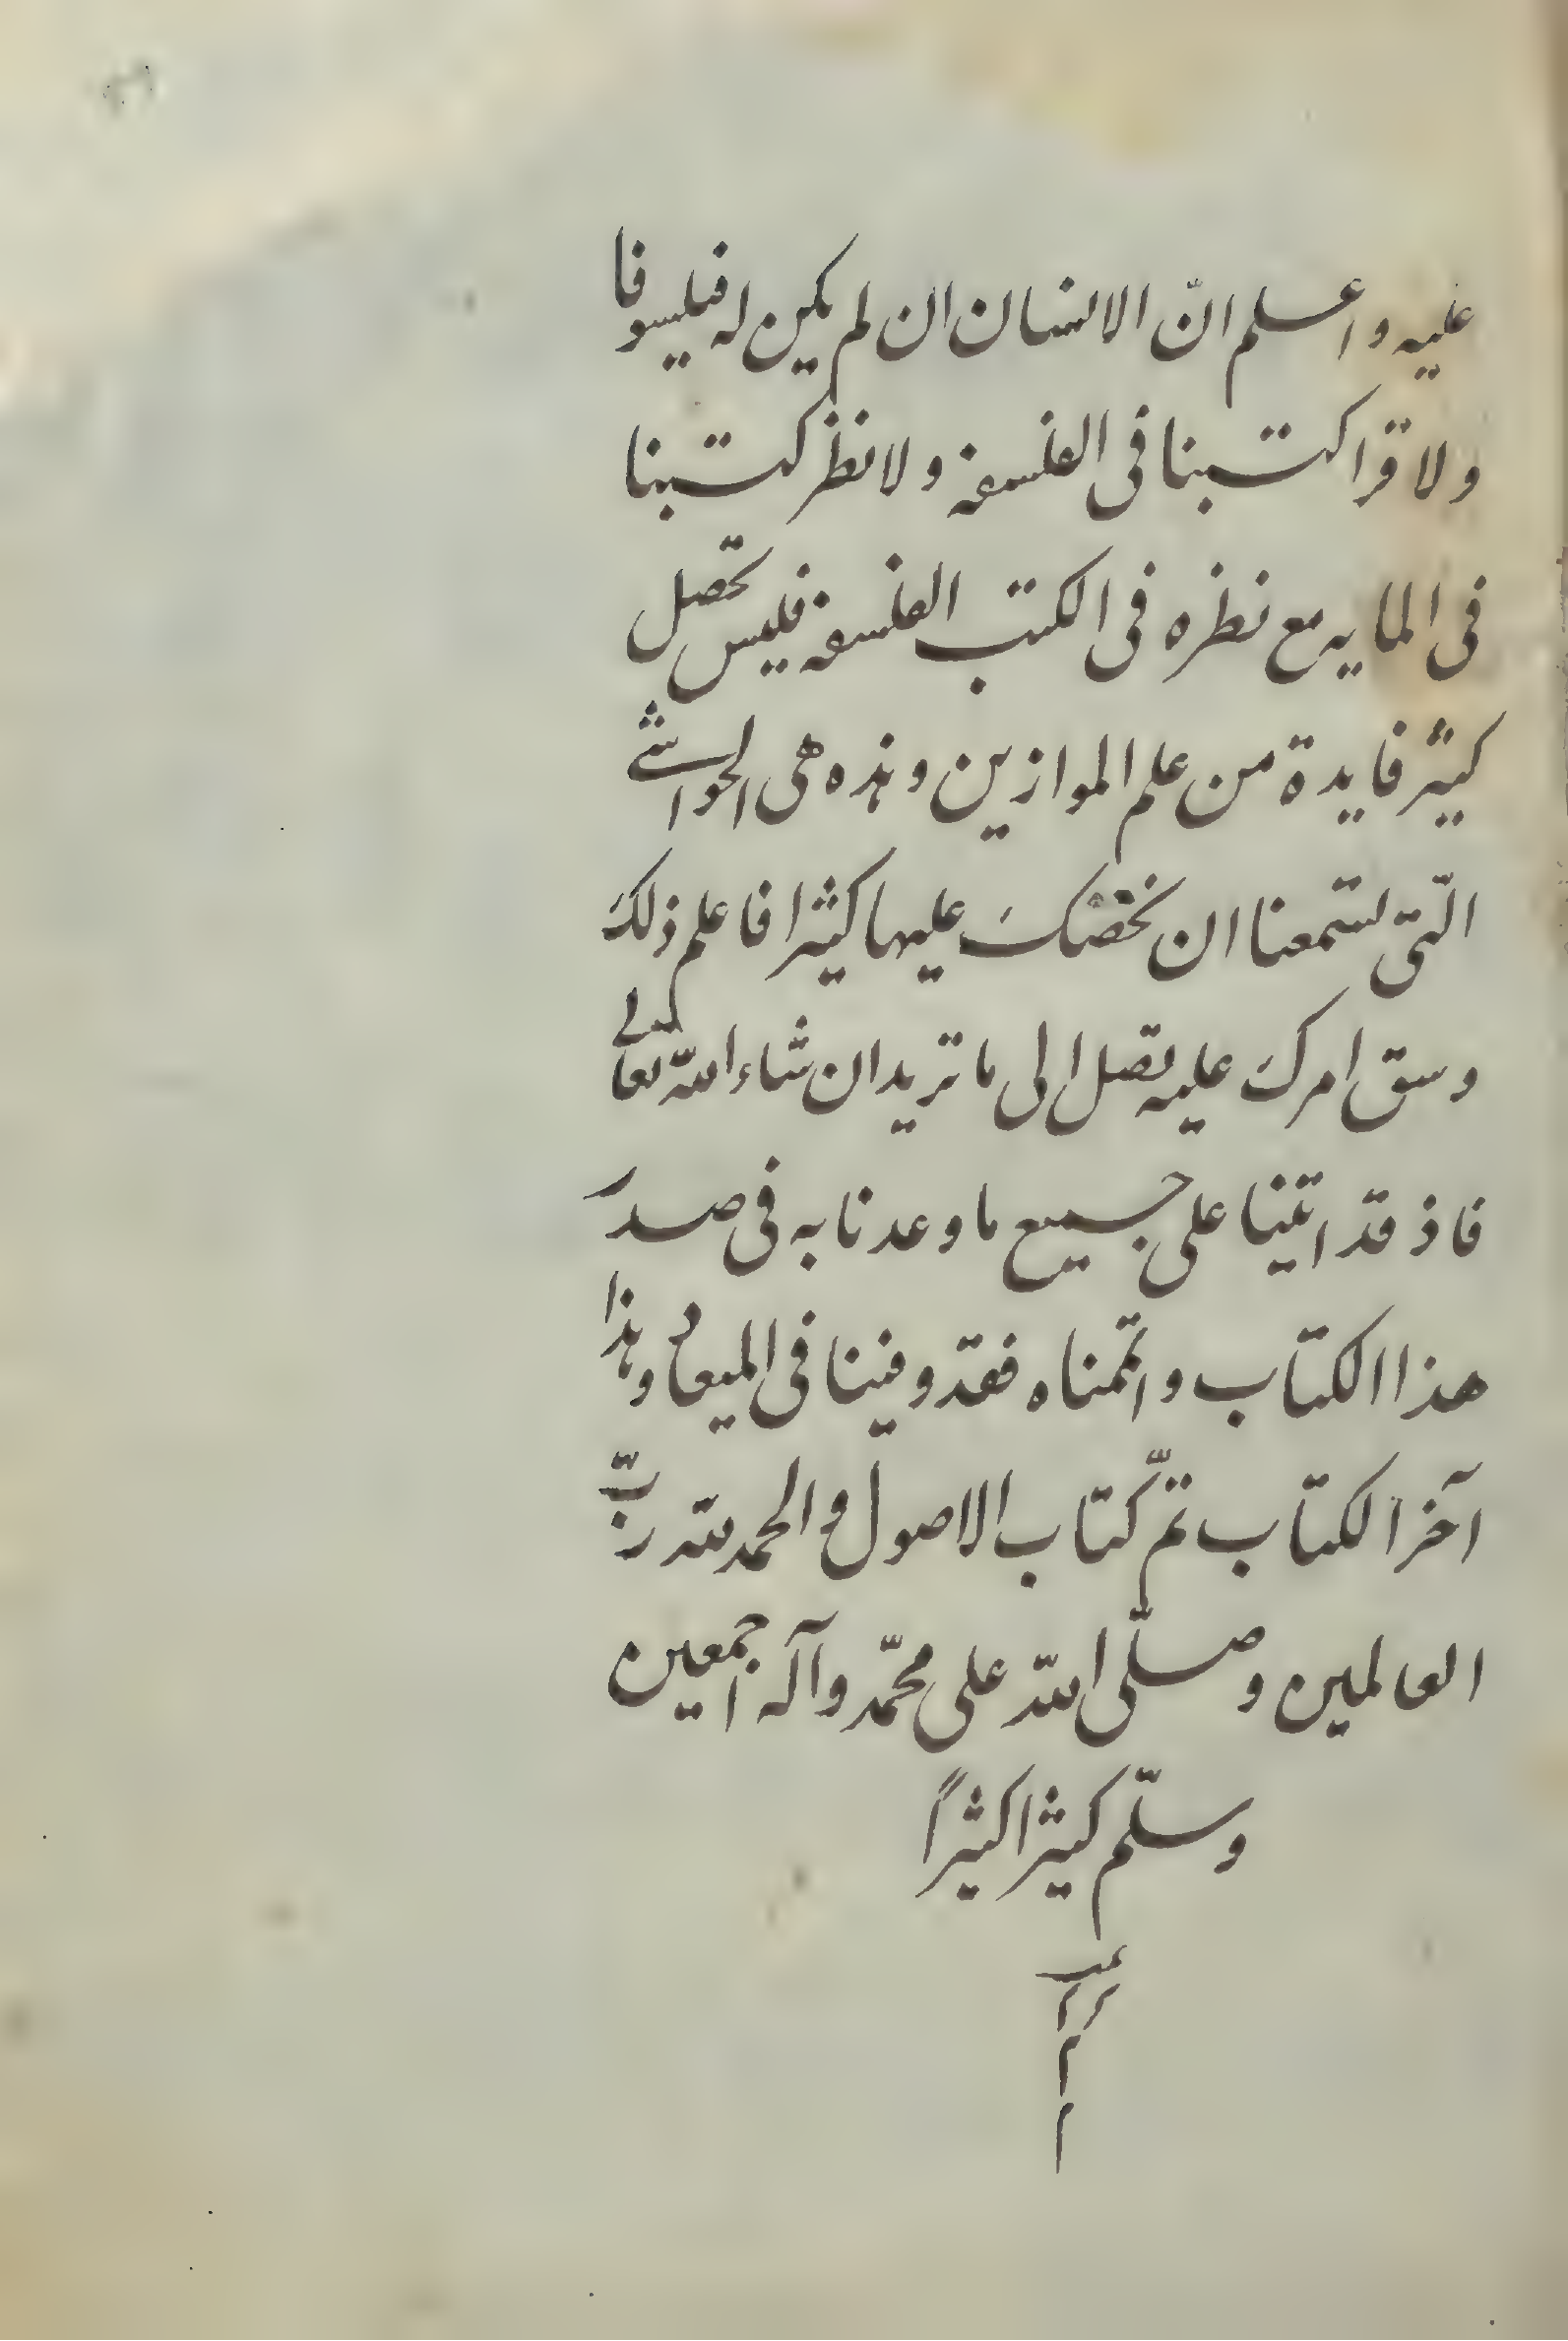 عليه واعلم انّ الانسان ان لم يكن له فيلسوفا
ولا قرا كتبنا فى الفلسفة ولا نظر كتبنا
فى المايه مع نظره فى الكتب الفلسفة فليس تحصل
كثير فايدة من علم الموازين وهذه هى الحواشے
الّتى تستمعنا ان نخصّك عليها كثيرا فاعلم ذلك
وسق امرك عليه تصل الى ما تريد ان شاء الله تعالى
فاذ قد اتينا على جميع ما وعدنا به فى صدر
هذا الكتاب واتممناه فقد وفينا فى الميعاد وهذا
آخر الكتاب تمّ كتاب الاصول والحمد لله ربّ
العالمين وصلّى الله على محمّد وآله اجمعين
وسلّم كثيرا كثيراً